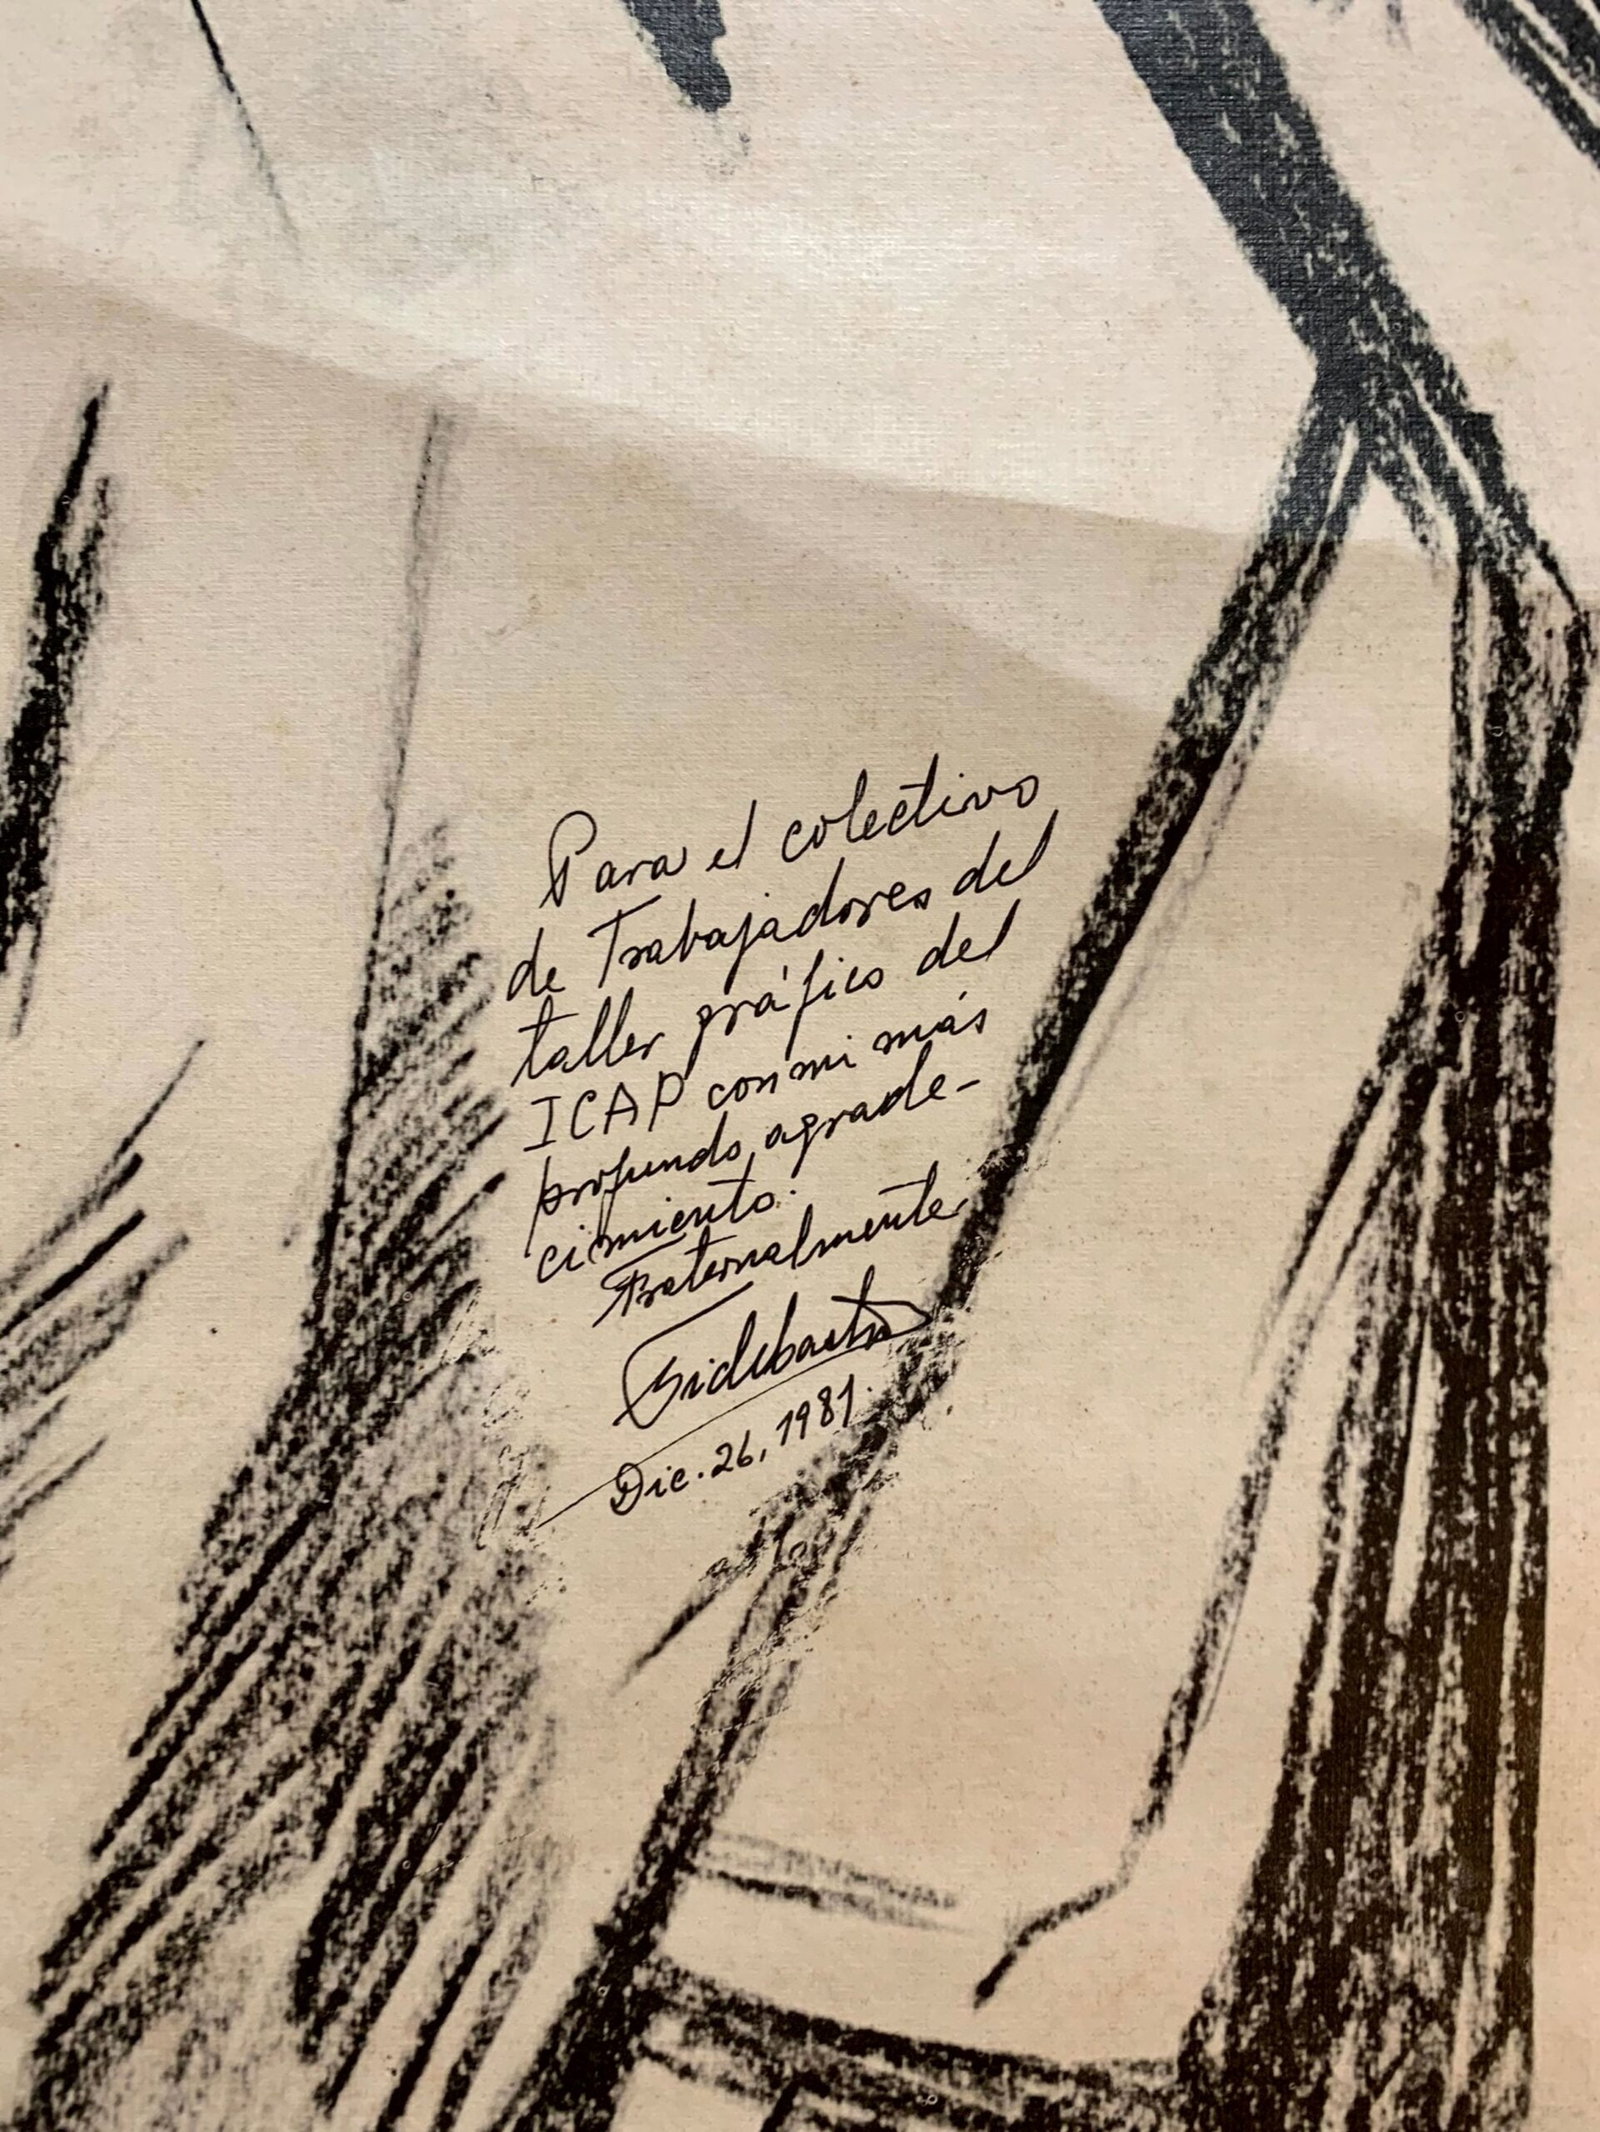 Para el colectivo
de Trabajadores del
taller gráfico del
ICAP con mi más
profundo agrade-
cimiento.
Fraternalmente
Dic. 26, 1981.